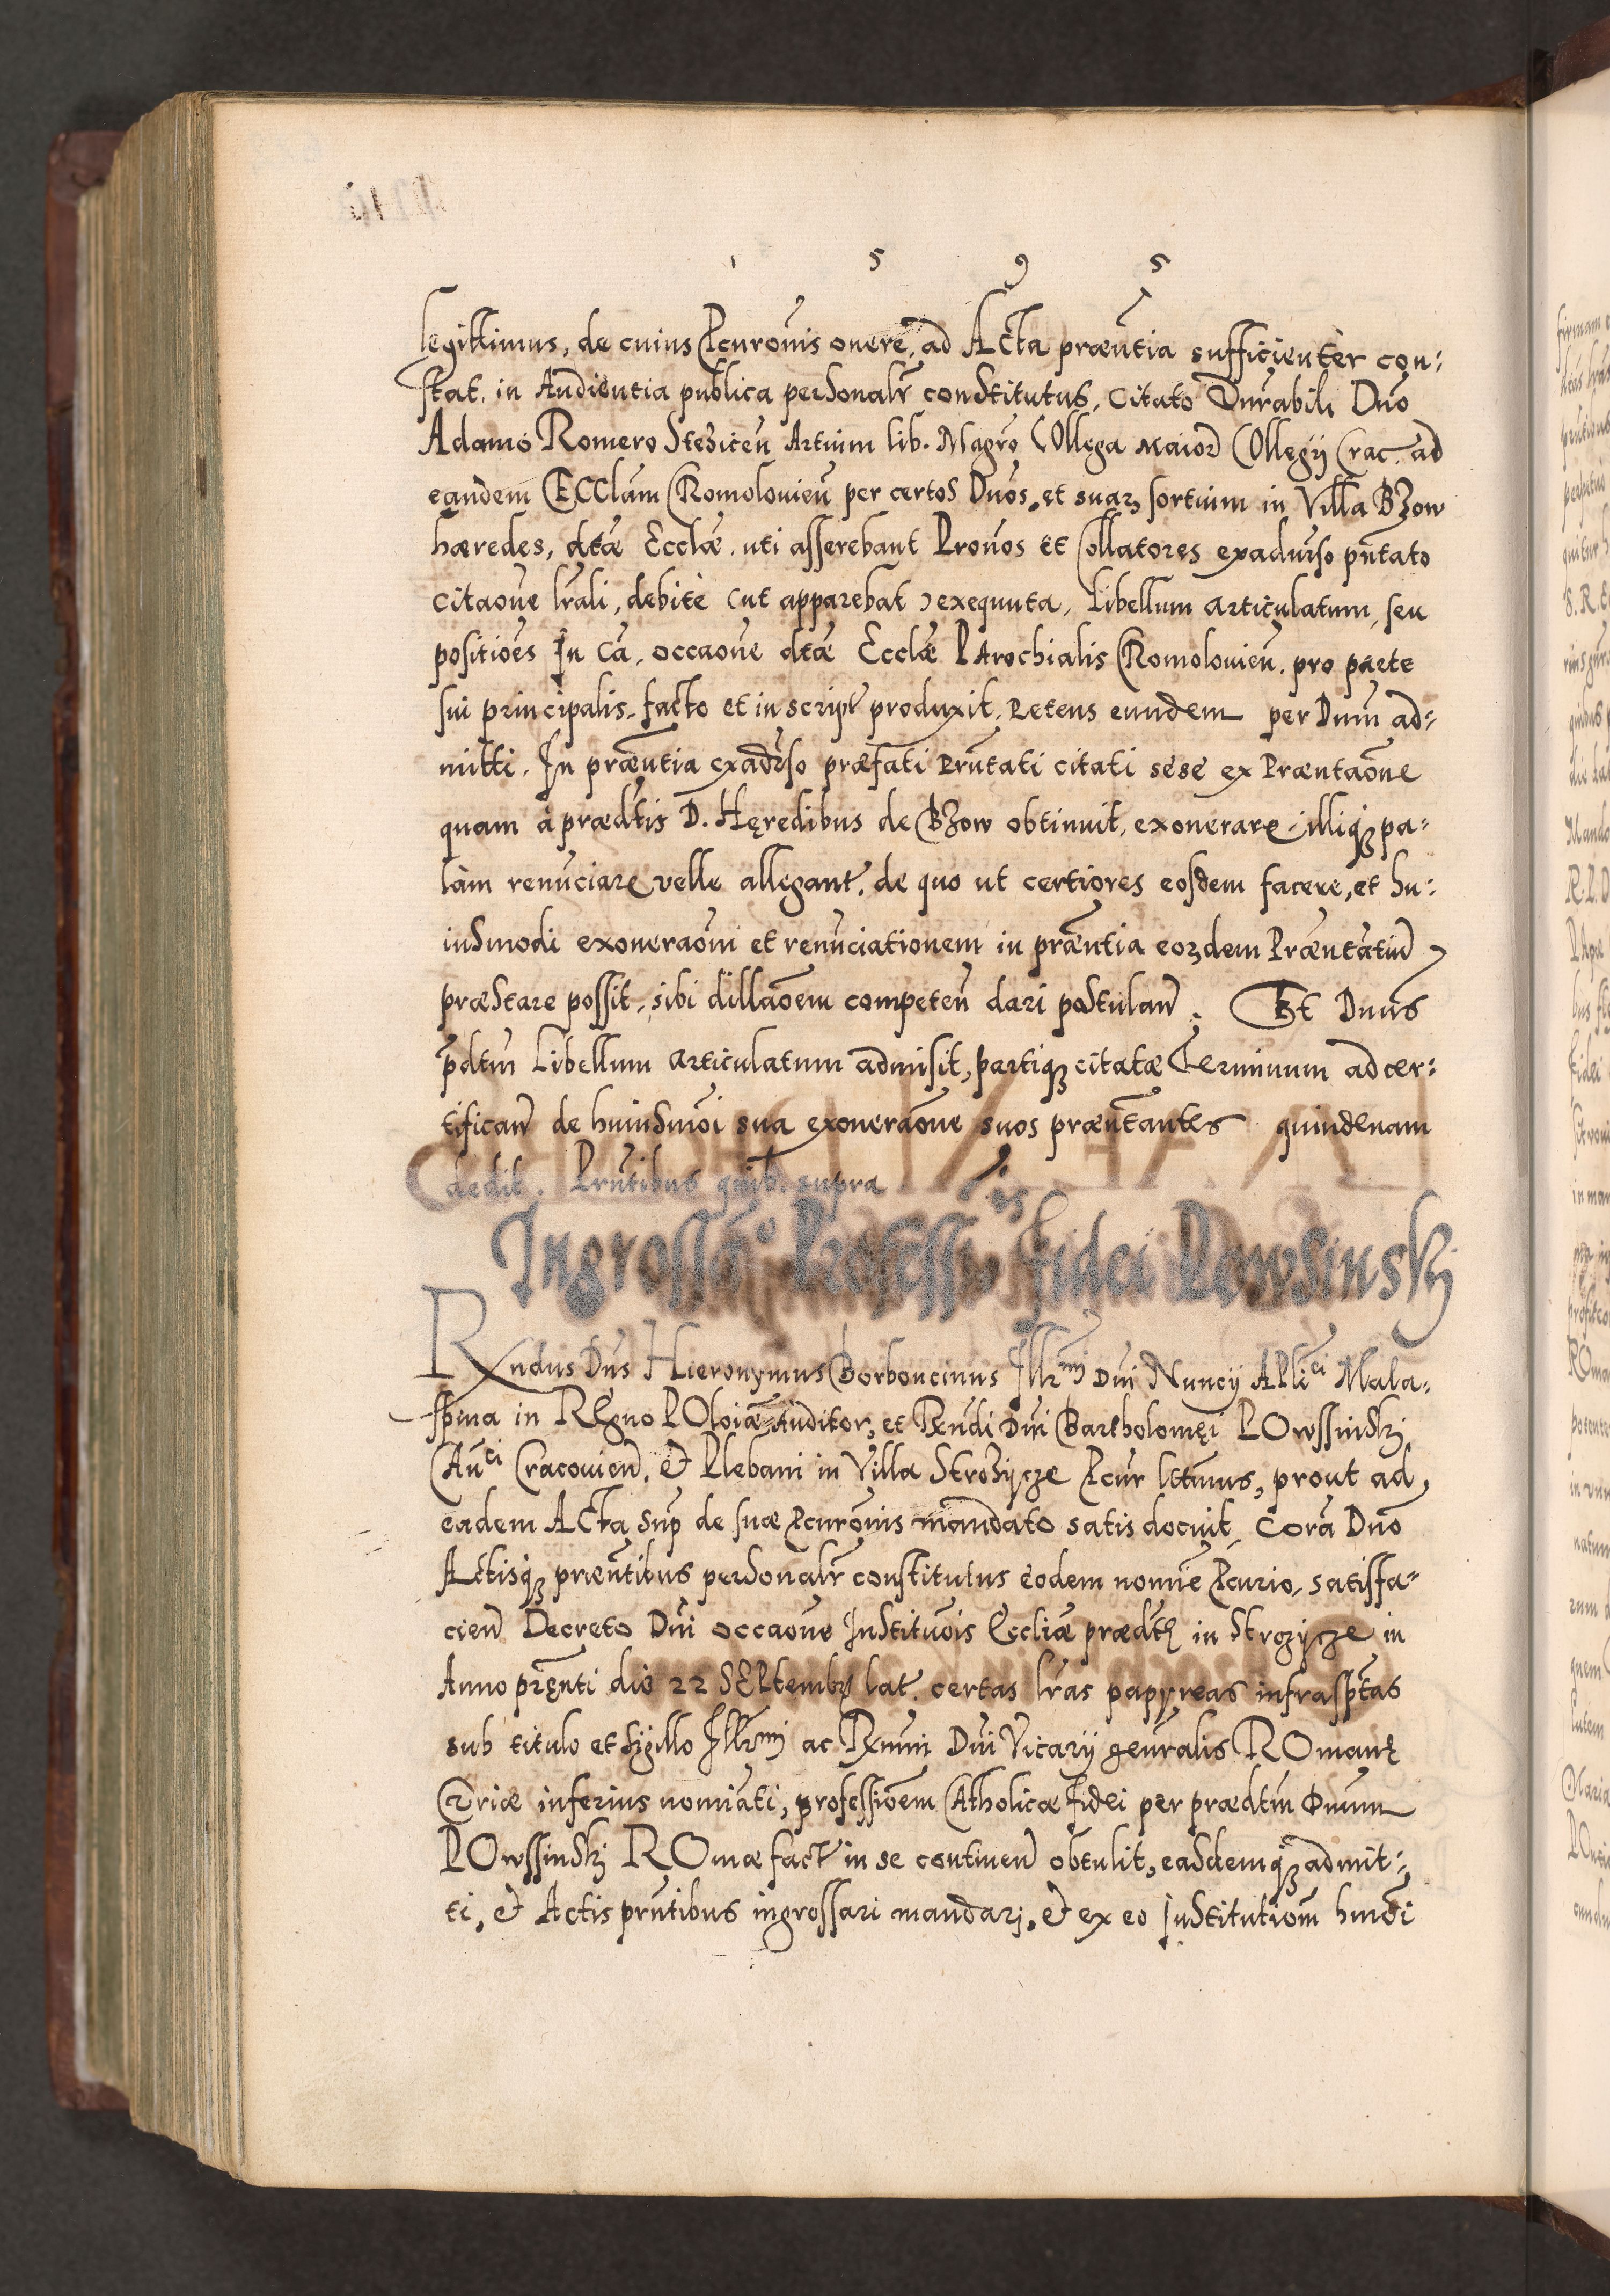 1 5 9 5
legittimus, de cuius Pcuronis onere, ad Acta præntia sufficientèr con:
stat. in Audientia publica personalr constitutus, Citato Vnrabili Dno
Adamo Romero Stezicen Artium lib. Magro Collega Maioris Collegij Crac. ad
eandem Ecclam Chromolouien per certos Dnos, et suarum sortium in Villa Bzow
hæredes, dtæ Ecclæ, uti asserebant Pronos et Collatores exaduerso pntato
citaone lrali, debitè (ut apparebat) exequuta, Libellum articulatum, seu
positiões In Ca, occaone dtæ Ecclæ Parochialis Chromolouien. pro parte
sui principalis, facto et in script produxit, Petens eundem per Dnum ad:
mitti. In præntia exaduerso præfati prntati citati sese ex Præntaone
quam à prædtis D. Hęredibus de Bzow obtinuit, exonerare, illiq3 pa:
làm renunciare velle allegant, de quo ut certiores eosdem facere, et hu:
iusmodi exoneraoni et renunciationem in præntia eorundem Præntatium
præstare possit, sibi dillaõem competen dari postulan. Et Dnus
pdtm Libellum articulatum admisit, partiq3 citatæ Terminum ad cer:
tifican de huiusmoi sua exoneraone suos præntantes quindenam
dedit. Prntibus quib. supra
Ingrossao Professionis fidei Powsinskj
Rndus Dns Hieronymus Borboncinus Illrmi Dni Nuncij Aplici Mala:
spina in Regno Poloiæ Auditor, et Rndi Dni Bartholomęi Powssinskj
Canci Cracouien. et Plebani in Villa Strozijcze Pcur lttimus, prout ad
eadem Acta sup de suæ Pcuronis mandato satis docuit, Corã Dno
Actisq3 præntibus personalr constitutus eodem nomine Pcurio, satisfa:
cien Decreto Dni occaone Institucois Eccliæ prædtę in Strozijcze in
Anno pręnti die 22 Septembris lat. certas lras papyreas infrasptas
sub titulo et sigillo Illrmi ac Rmi Dni Vicarij genralis Romanę
Curiæ inferius nomiati, professionem Catholicæ Fidei per prædtm Dnum
Powssinskj Romæ fact in se continen obtulit, easdemq3 admit:
ti, et Actis prntibus ingrossari mandari, et ex eo Institutionem hmõi